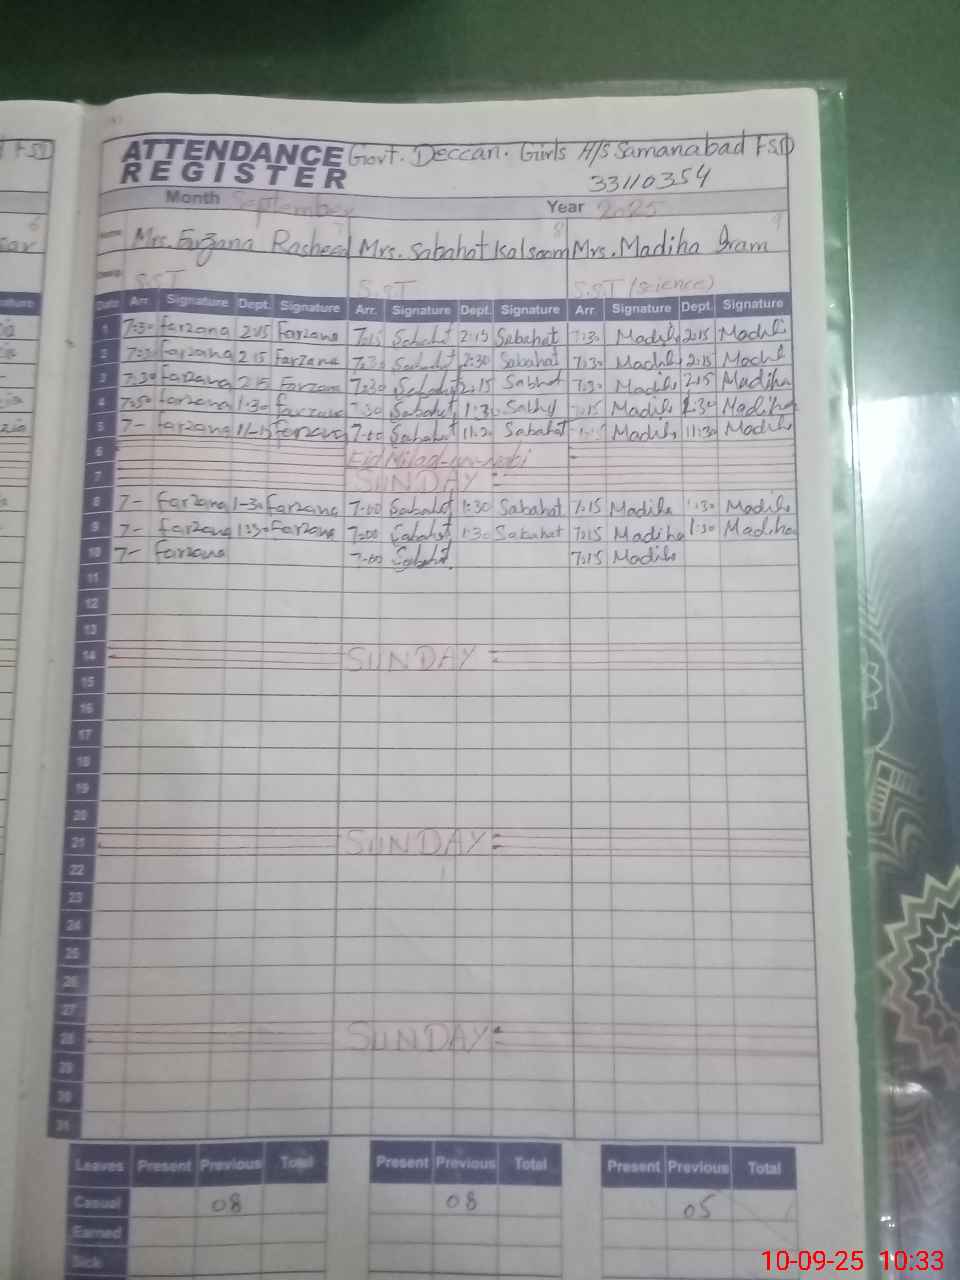 ATTENDANCE Govt. Deccan. Girls H/S Samanabad FSD
REGISTER 33110354
Month September Year 2025
Name Mrs. Farzana Rasheed Mrs. Sabahat Kalsoom Mrs. Madiha Iram
S.ST S.ST S.ST (science)
Date Arr. Signature Dept. Signature Arr. Signature Dept. Signature Arr. Signature Dept. Signature
1 7:30 Farzana 2:15 Farzana 7:15 Sabahat 2:15 Sabahat 7:30 Madiha 2:15 Madiha
2 7:30 Farzana 2 15 Farzana 7:30 Sabahat 2:30 Sabahat 7:30 Madiha 2:15 Madiha
3 7:30 Farzana 2 15 Farzana 7:30 Sabahat 2:15 Sabahat 7:30 Madiha 2:15 Madiha
4 Farzana 1:30 Farzana 7:30 Sabahat 1:30 7:15 Madiha 1:30 Madiha
5 7- Farzana Farzana 7:00 Sabahat 11:30 Sabahat Madiha 11:30 Madiha
6 Eid Milad-un-Nabi
7 SUNDAY
8 7- Farzana 1-30 Farzana 7:00 Sabahat 1:30 Sabahat 7:15 Madiha 1:30 Madiha
9 7- Farzana 1:30 Farzana 7:00 Sabahat 1:30 Sabahat 7:15 Madiha 1:30 Madiha
10 7- Farzana 7:00 Sabahat 7:15 Madiha
11
12
13
14 SUNDAY
15
16
17
18
19
20
21 SUNDAY
22
23
24
25
26
27
28 SUNDAY
29
30
31
Leaves Present Previous Total Present Previous Total Present Previous Total
Casual 08 08 05
Earned
Sick
10-09-25 10:33